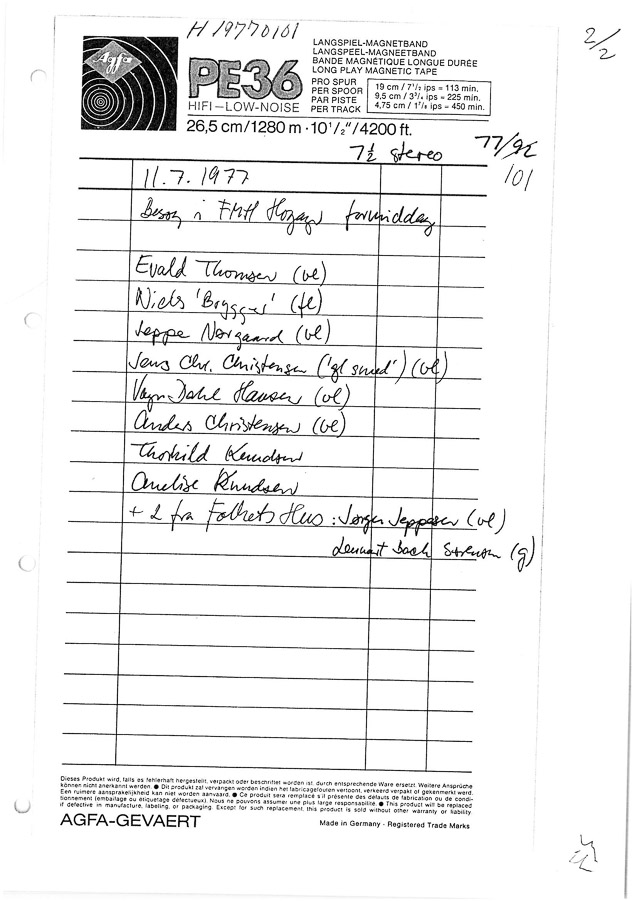 H 19770101
2/2
Agfa
PE36
HIFI–LOW–NOISE
LANGSPIEL-MAGNETBAND
LANGSPEEL-MAGNEETBAND
BANDE MAGNÉTIQUE LONGUE DURÉE
LONG PLAY MAGNETIC TAPE
PRO SPUR
PER SPOOR
PAR PISTE
PER TRACK
19 cm / 7 1/2 ips = 113 min.
9,5 cm / 3 3/4 ips = 225 min.
4,75 cm / 1 7/8 ips = 450 min.
26,5 cm/1280 m · 10 1/2"/4200 ft.
7 1/2 stereo
77/92
101
11.7.1977
Besøg i FMH Hogager formiddag
Evald Thomsen (vl)
Niels 'Brygger' (fl)
Jeppe Nørgaard (vl)
Jens Chr. Christensen ('gl smed') (vl)
Vagn Dahl Hansen (vl)
Anders Christensen (vl)
Thorkild Knudsen
Anelise Knudsen
+ 2 fra Folkets Hus : Jørgen Jeppesen (vl)
Lennart Bach Sørensen (g)
Dieses Produkt wird, falls es fehlerhaft hergestellt, verpackt oder beschriftet worden ist, durch entsprechende Ware ersetzt. Weitere Ansprüche
können nicht anerkannt werden. ● Dit produkt zal vervangen worden indien het fabricagefouten vertoont, verkeerd verpakt of gekenmerkt werd.
Een ruimere aansprakelijkheid kan niet worden aanvaard. ● Ce produit sera remplacé s'il présente des défauts de fabrication ou de condi-
tionnement (emballage ou étiquetage défectueux). Nous ne pouvons assumer une plus large responsabilité. ● This product will be replaced
if defective in manufacture, labeling, or packaging. Except for such replacement, this product is sold without other warranty or liability.
AGFA-GEVAERT
Made in Germany - Registered Trade Marks